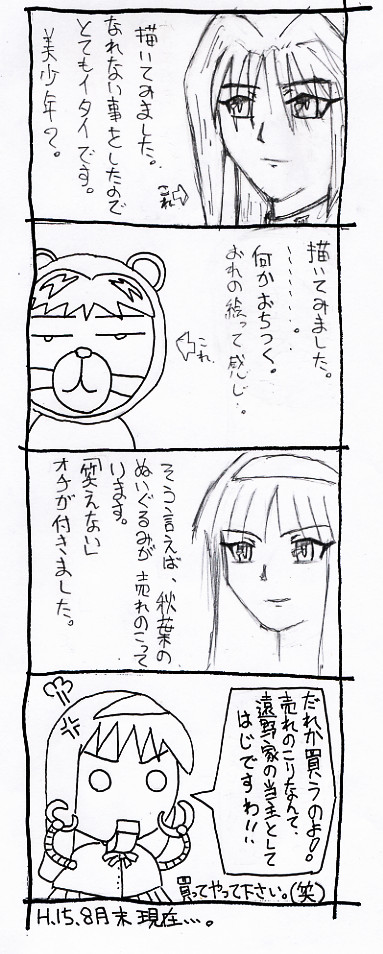 描いてみました。
なれない事をしたので
とてもイタイです。
美少年？。
これ
描いてみました。
、、、、、、、。
何かおちつく。
おれの絵って感じ…。
これ
そう言えば、秋葉の
ぬいぐるみが売れのこって
います。
「笑えない」
オチが付きました。
だれか買うのよ!!
売れのこりなんて、
遠野家の当主として
はじですわ!!
買ってやって下さい。(笑)
H.15.8月末現在…。